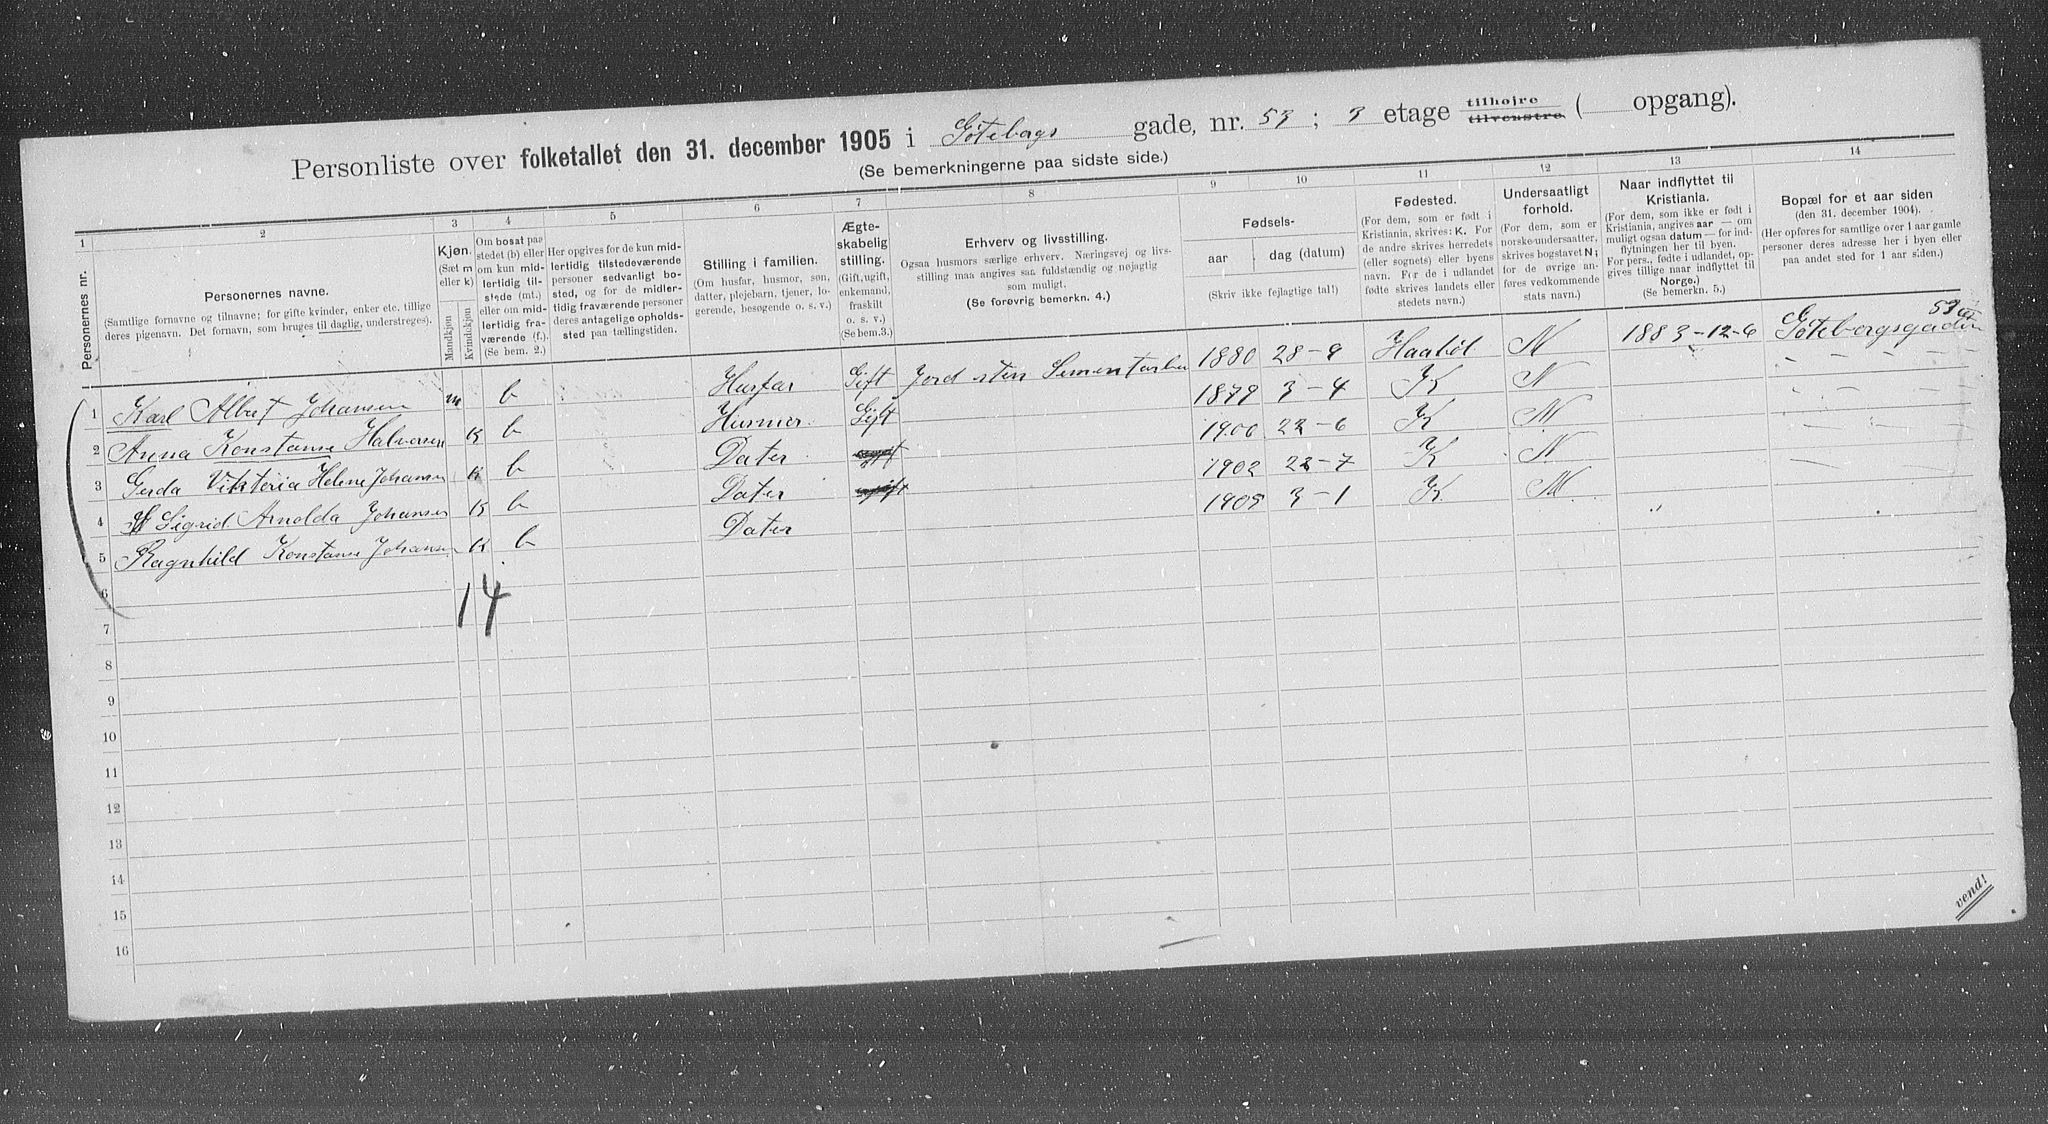 Personliste over folketallet den 31. december 1905 i Göteborgs gade, nr. 53 ; 3 etage tilhøjre tilvenstre ( opgang).
(Se bemerkningerne paa sidste side.)
1 2 3 4 5 6 7 8 9 10 11 12 13 14
Personernes nr.
Personernes navne.
(Samtlige fornavne og tilnavne; for gifte kvinder, enker etc. tillige
deres pigenavn. Det fornavn, som bruges til daglig, understreges).
Kjøn.
(Sæt m
eller k)
Mandkjøn
Kvindekjøn
Om bosat paa
stedet (b) eller
om kun mid-
lertidig til-
stede (mt.)
eller om mid-
lertidig fra-
værende (f.).
(Se bem. 2.)
Her opgives for de kun mid-
lertidig tilstedeværende
personer sedvanligt bo-
sted, og for de midler-
tidig fraværende personer
deres antagelige opholds-
sted paa tællingstiden.
Stilling i familien.
(Om husfar, husmor, søn,
datter, plejebarn, tjener, lo-
gerende, besøgende o. s. v.)
Ægte-
skabelig
stilling.
(Gift, ugift,
enkemand,
fraskilt
o. s. v.)
(Se bem.3.)
Erhverv og livsstilling.
Ogsaa husmors særlige erhverv. Næringsvej og livs-
stilling maa angives saa fuldstændig og nøjagtig
som muligt.
(Se forøvrig bemerkn. 4.)
Fødsels-
aar
dag (datum)
(Skriv ikke fejlagtige tal!)
Fødested.
(For dem, som er født i
Kristiania, skrives: K. For
de andre skrives herredets
(eller sognets) eller byens
navn. For de i udlandet
fødte skrives landets eller
stedets navn.)
Undersaatligt
forhold.
(For dem, som er
norske undersaatter,
skrives bogstavet N;
for de øvrige an-
føres vedkommende
stats navn.)
Naar indflyttet til
Kristiania.
(For dem, som ikke er født i
Kristiania, angives aar — om
muligt ogsaa datum — for ind-
flytningen her til byen.
For pers., fødte i udlandet, op-
gives tillige naar indflyttet til
Norge.)
(Se bemerkn. 5.)
Bopæl for et aar siden
(den 31. december 1904).
(Her opføres for samtlige over 1 aar gamle
personer deres adresse her i byen eller
paa andet sted for 1 aar siden.)
1 Karl Albert Johansen m b Husfar Gift Jord sten 1880 28-9 Haabøl N 1883-12-6 Göteborgsgaden 53
2 Anna Konstanse Halvorsen K b Husmor. Gift 1879 3-4 K N
3 Gerda Viktoria Helene Johansen K b Dater 1900 22-6 K N
4 Sigrid Arnolda Johansen K b Dater 1902 22-7 K N
5 Ragnhild Konstanse Johansen K b Dater 1905 3-1 K N
6
14
7
8
9
10
11
12
13
14
15
16
vend!